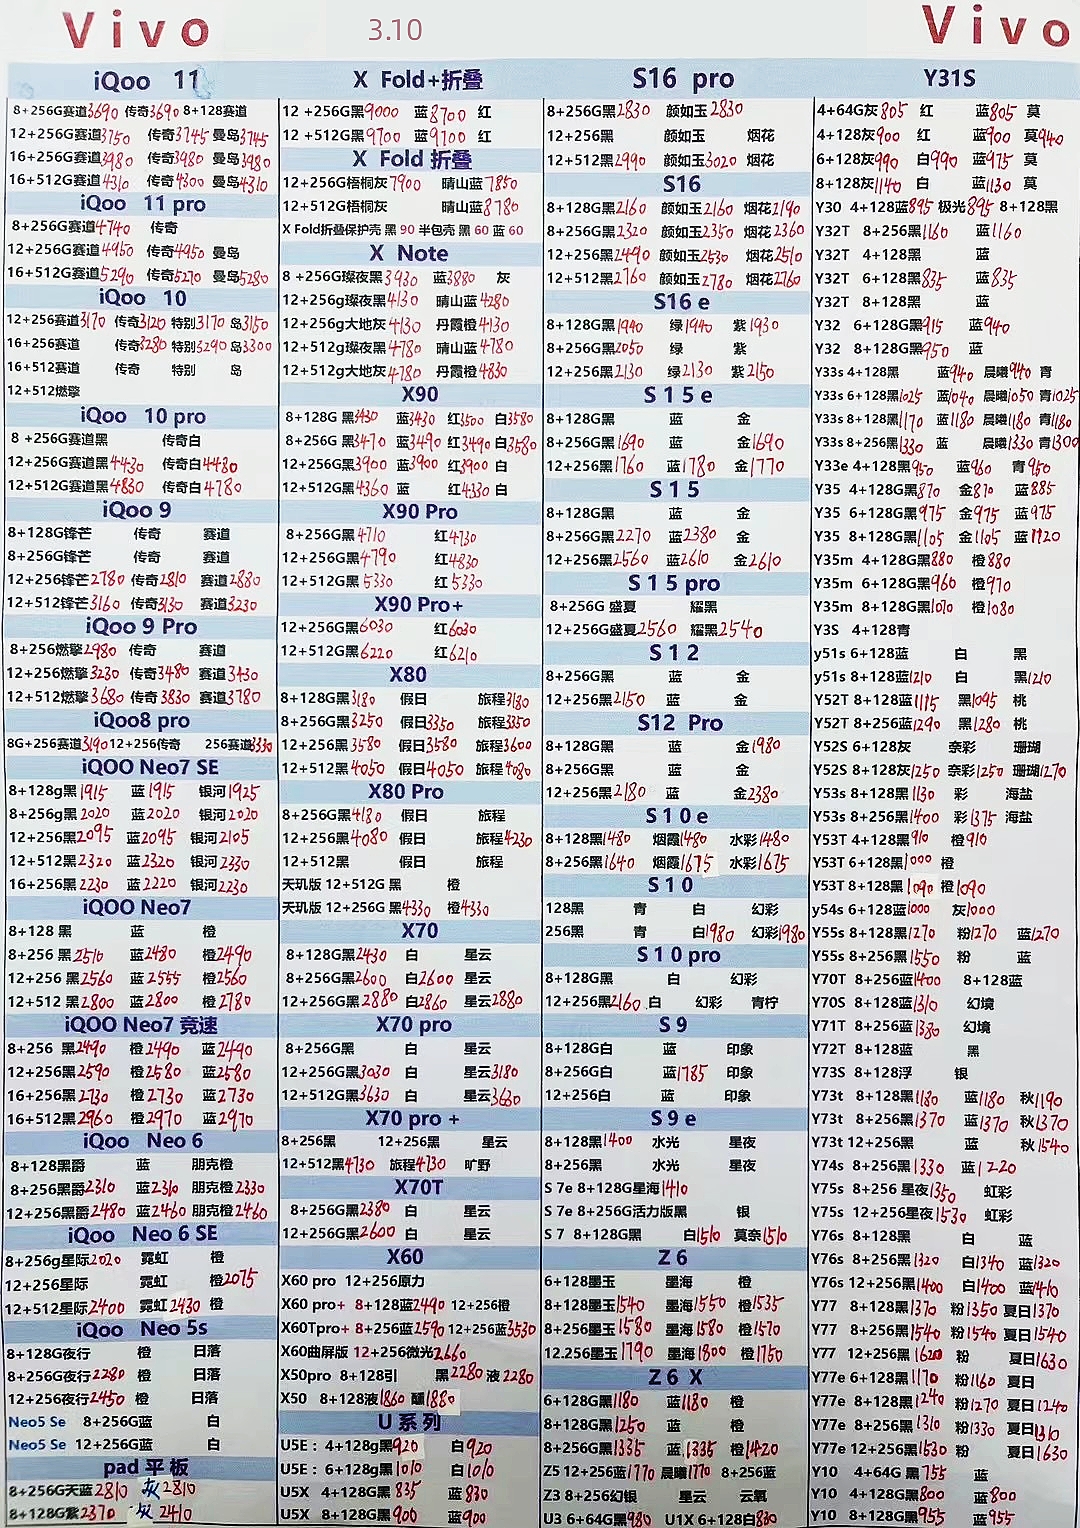 Vivo 3.10 Vivo
iQoo 11
8+256G赛道3690 传奇3690 8+128赛道
12+256G赛道3750 传奇3745 曼岛3745
16+256G赛道3980 传奇3980 曼岛3980
16+512G赛道4310 传奇4300 曼岛4310
iQoo 11 pro
8+256G赛道4740 传奇
12+256G赛道4950 传奇4950 曼岛
16+512G赛道5290 传奇5270 曼岛5280
iQoo 10
12+256赛道3170 传奇3120 特别3170 岛3150
16+256赛道 传奇3280 特别3290 岛3300
16+512赛道 传奇 特别 岛
12+512燃擎
iQoo 10 pro
8 +256G赛道黑 传奇白
12+256G赛道黑4430 传奇白4480
12+512G赛道黑4830 传奇白4780
iQoo 9
8+128G锋芒 传奇 赛道
8+256G锋芒 传奇 赛道
12+256锋芒2780 传奇2810 赛道2880
12+512锋芒3160 传奇3130 赛道3230
iQoo 9 Pro
8+256燃擎2980 传奇 赛道
12+256燃擎3230 传奇3480 赛道3430
12+512燃擎3680 传奇3830 赛道3780
iQoo8 pro
8G+256赛道3190 12+256传奇 256赛道3330
iQOO Neo7 SE
8+128g黑1915 蓝1915 银河1925
8+256g黑2020 蓝2020 银河2020
12+256黑2095 蓝2095 银河2105
12+512黑2320 蓝2320 银河2330
16+256黑2230 蓝2220 银河2230
iQOO Neo7
8+128 黑 蓝 橙
8+256 黑2510 蓝2480 橙2490
12+256 黑2560 蓝2555 橙2560
12+512 黑2800 蓝2800 橙2780
iQOO Neo7 竞速
8+256 黑2490 橙2490 蓝2490
12+256黑2590 橙2580 蓝2580
16+256黑2730 橙2730 蓝2730
16+512黑2960 橙2970 蓝2970
iQoo Neo 6
8+128黑爵 蓝 朋克橙
8+256黑爵2310 蓝2310 朋克橙2330
12+256黑爵2480 蓝2460 朋克橙2460
iQoo Neo 6 SE
8+256g星际2020 霓虹 橙
12+256星际 霓虹 橙2075
12+512星际2400 霓虹2430 橙
iQoo Neo 5s
8+128G夜行 橙 日落
8+256G夜行2280 橙 日落
12+256夜行2450 橙 日落
Neo5 Se 8+256G蓝 白
Neo5 Se 12+256G蓝 白
pad平板
8+256G天蓝2810 灰2810
8+128G紫2370 灰2410
X Fold+折叠
12 +256G黑9000 蓝8700 红
12 +512G黑9700 蓝9100 红
X Fold 折叠
12+256G梧桐灰7900 晴山蓝7850
12+512G梧桐灰 晴山蓝8780
X Fold折叠保护壳 黑 90 半包壳 黑 60 蓝 60
X Note
8 +256G璨夜黑3930 蓝3880 灰
12+256g璨夜黑4130 晴山蓝4280
12+256g大地灰4130 丹霞橙4130
12+512g璨夜黑4780 晴山蓝4780
12+512g大地灰4780 丹霞橙4830
X90
8+128G 黑3430 蓝3430 红3500 白3580
8+256G 黑3470 蓝3490 红3490 白3580
12+256G黑3900 蓝3900 红3900 白
12+512G黑4360 蓝 红4330 白
X90 Pro
8+256G黑4710 红4730
12+256G黑4790 红4830
12+512G黑5330 红5330
X90 Pro+
12+256G黑6030 红6030
12+512G黑6220 红6210
X80
8+128G黑3180 假日 旅程3180
8+256G黑3250 假日3350 旅程3350
12+256黑3580 假日3580 旅程3600
12+512黑4050 假日4050 旅程4080
X80 Pro
8+256G黑4180 假日 旅程
12+256黑4080 假日 旅程4230
12+512黑 假日 旅程
天玑版 12+512G 黑 橙
天玑版 12+256G 黑4330 橙4330
X70
8+128G黑2430 白 星云
8+256G黑2600 白2600 星云
12+256G黑2880 白2860 星云2880
X70 pro
8+256G黑 白 星云
12+256G黑3030 白 星云3180
12+512G黑3630 白 星云3630
X70 pro +
8+256黑 12+256黑 星云
12+512黑4730 旅程4730 旷野
X70T
8+256G黑2380 白 星云
12+256G黑2600 白 星云
X60
X60 pro 12+256原力
X60 pro+ 8+128蓝2490 12+256橙
X60Tpro+ 8+256蓝2590 12+256蓝3530
X60曲屏版 12+256微光2660
X50pro 8+128引 黑2280 液2280
X50 8+128液1860 醺1880
U系列
U5E：4+128g黑920 白920
U5E：6+128g黑1010 白1010
U5X 4+128G黑835 蓝830
U5X 8+128G黑900 蓝900
S16 pro
8+256G黑2830 颜如玉2830
12+256黑 颜如玉 烟花
12+512黑2990 颜如玉3020 烟花
S16
8+128G黑2160 颜如玉2160 烟花2190
8+256G黑2320 颜如玉2350 烟花2360
12+256黑2490 颜如玉2530 烟花2510
12+512黑2760 颜如玉2780 烟花2760
S16 e
8+128G黑1940 绿1940 紫1930
8+256G黑2050 绿 紫
12+256黑2130 绿2130 紫2150
S15e
8+128G黑 蓝 金
8+256G黑1690 蓝 金1690
12+256黑1760 蓝1780 金1770
S15
8+128G黑 蓝 金
8+256G黑2270 蓝2380 金
12+256黑2560 蓝2610 金2610
S15pro
8+256G 盛夏 耀黑
12+256G盛夏2560 耀黑2540
S12
8+256G黑 蓝 金
12+256黑2150 蓝 金
S12 Pro
8+128G黑 蓝 金1980
8+256G黑 蓝 金
12+256黑2180 蓝 金2380
S10e
8+128黑1480 烟霞1480 水彩1480
8+256黑1640 烟霞1675 水彩1675
S10
128黑 青 白 幻彩
256黑 青 白1980 幻彩1980
S10pro
8+128G黑 白 幻彩
12+256黑2160 白 幻彩 青柠
S9
8+128G白 蓝 印象
8+256G白 蓝1785 印象
12+256G白 蓝 印象
S9e
8+128黑1400 水光 星夜
8+256黑 水光 星夜
S 7e 8+128G星海1410
S 7e 8+256G活力版黑 银
S 7 8+128G黑 白1510 莫奈1510
Z6
6+128墨玉 墨海 橙
8+128墨玉1540 墨海1550 橙1535
8+256墨玉1580 墨海1580 橙1570
12.256墨玉1790 墨海1800 橙1750
Z6 X
6+128G黑1180 蓝1180 橙
8+128G黑1250 蓝 橙
8+256G黑1335 蓝1335 橙1420
Z5 12+256蓝1770 晨曦1770 8+256蓝
Z3 8+256幻银 星云 云氧
U3 6+64G黑980 U1X 6+128白830
Y31S
4+64G灰805 红 蓝805 莫
4+128灰900 红 蓝900 莫940
6+128灰990 白990 蓝975 莫
8+128灰1140 白 蓝1130 莫
Y30 4+128蓝895 极光895 8+128黑
Y32T 8+256黑1160 蓝1160
Y32T 4+128黑 蓝
Y32T 6+128黑835 蓝835
Y32T 8+128黑 蓝
Y32 6+128G黑915 蓝940
Y32 8+128G黑950 蓝
Y33s 4+128黑 蓝940 晨曦940 青
Y33s 6+128黑1025 蓝1040 晨曦1050 青1025
Y33s 8+128黑1170 蓝1180 晨曦1180 青1180
Y33s 8+256黑1330 蓝 晨曦1330 青1300
Y33e 4+128黑950 蓝960 青950
Y35 4+128G黑870 金870 蓝885
Y35 6+128G黑975 金975 蓝975
Y35 8+128G黑1105 金1105 蓝1120
Y35m 4+128G黑880 橙880
Y35m 6+128G黑960 橙970
Y35m 8+128G黑1070 橙1080
Y3S 4+128青
y51s 6+128蓝 白 黑
y51s 8+128蓝1210 白 黑1210
Y52T 8+128蓝1115 黑1095 桃
Y52T 8+256蓝1290 黑1280 桃
Y52S 6+128灰 奈彩 珊瑚
Y52S 8+128灰1250 奈彩1250 珊瑚1270
Y53s 8+128黑1130 彩 海盐
Y53s 8+256黑1400 彩1375 海盐
Y53T 4+128黑910 橙910
Y53T 6+128黑1000 橙
Y53T 8+128黑1090 橙1090
y54s 6+128蓝1000 灰1000
Y55s 8+128黑1270 粉1270 蓝1270
Y55s 8+256黑1550 粉 蓝
Y70T 8+256蓝1400 8+128蓝
Y70S 8+128蓝1310 幻境
Y71T 8+256蓝1380 幻境
Y72T 8+128蓝 黑
Y73S 8+128浮 银
Y73t 8+128黑1180 蓝1180 秋1190
Y73t 8+256黑1370 蓝1370 秋1370
Y73t 12+256黑 蓝 秋1540
Y74s 8+256黑1330 蓝1220
Y75s 8+256 星夜1350 虹彩
Y75s 12+256星夜1530 虹彩
Y76s 8+128黑 白 蓝
Y76s 8+256黑1320 白1340 蓝1320
Y76s 12+256黑1400 白1400 蓝1410
Y77 8+128黑1370 粉1350 夏日1370
Y77 8+256黑1540 粉1540 夏日1540
Y77 12+256黑1620 粉 夏日1630
Y77e 6+128黑1170 粉1160 夏日
Y77e 8+128黑1240 粉1270 夏日1240
Y77e 8+256黑1310 粉1330 夏日1310
Y77e 12+256黑1530 粉 夏日1630
Y10 4+64G 黑755 蓝
Y10 4+128G黑800 蓝800
Y10 8+128G黑955 蓝955